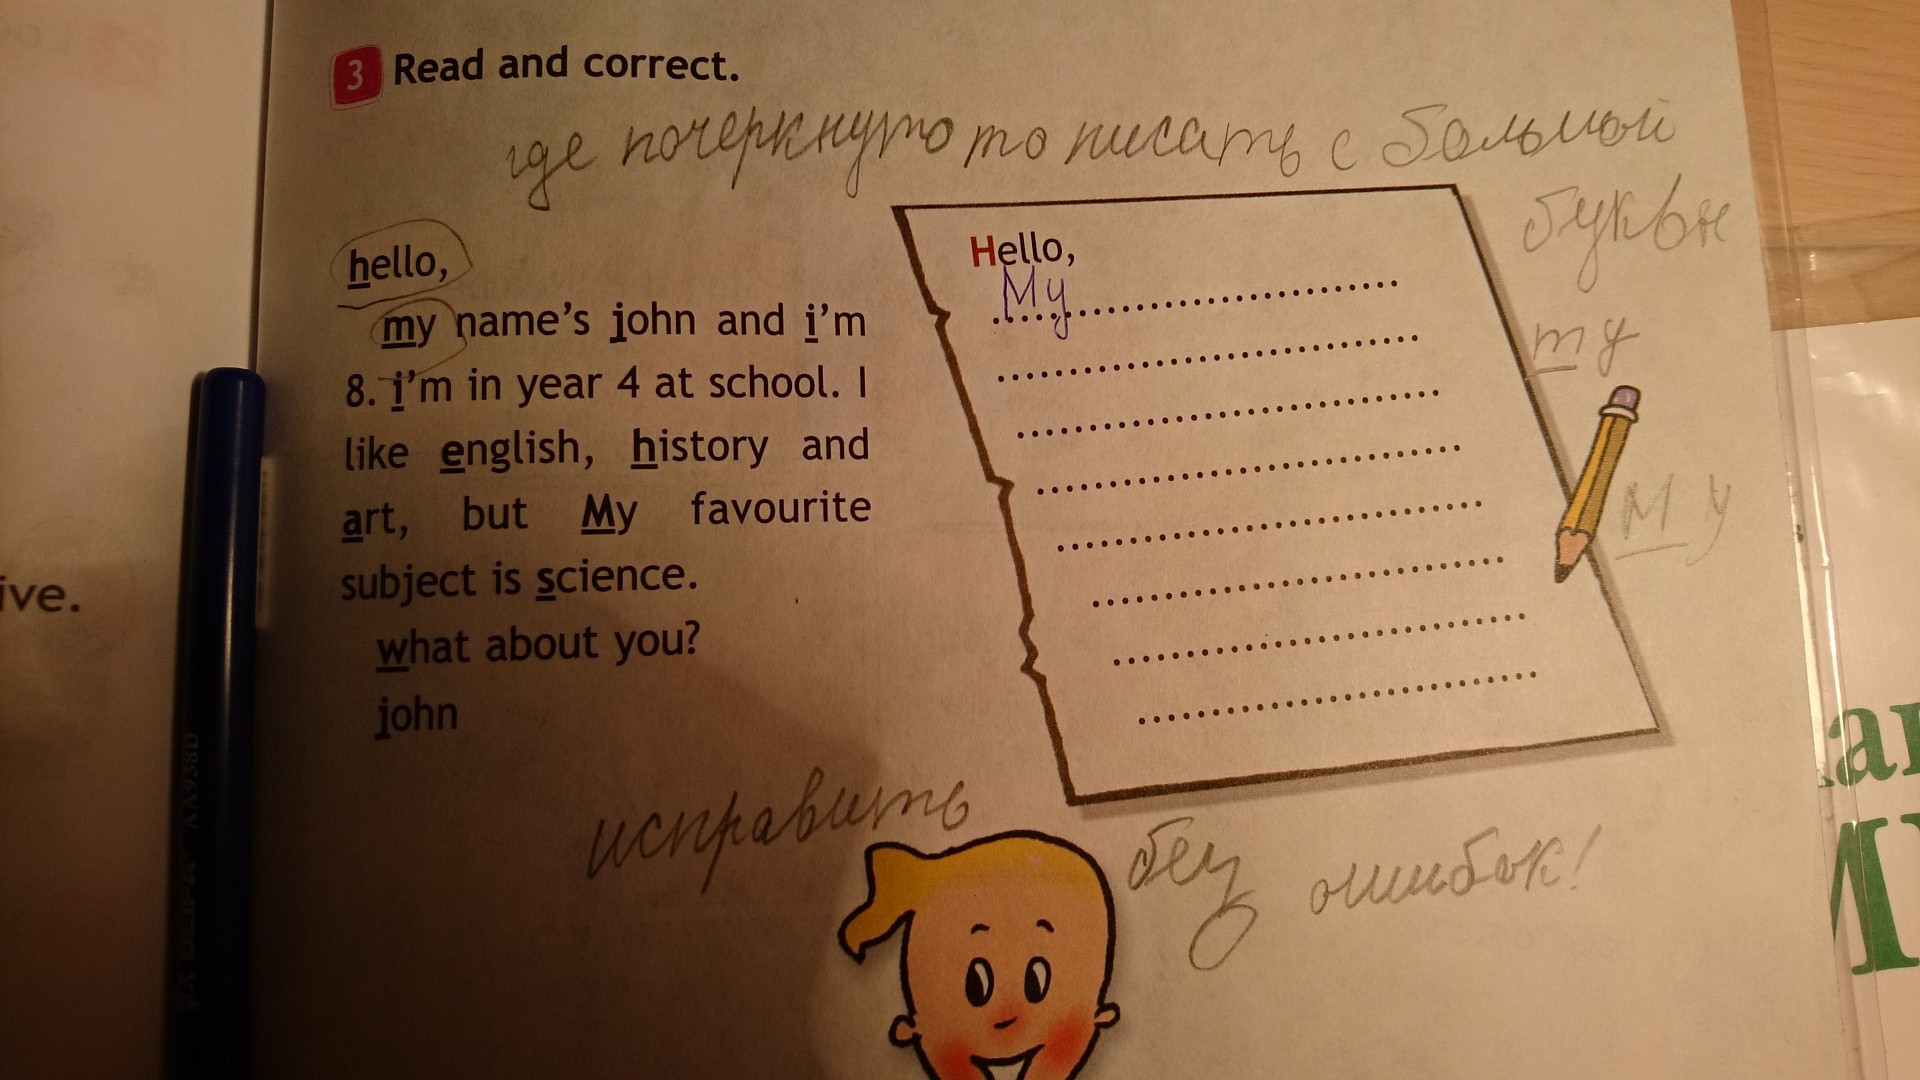 3 Read and correct.
где почеркнуто то писать с большой
буквы
hello,
my name's john and i'm
8. i'm in year 4 at school. I
like english, history and
art, but My favourite
subject is science.
what about you?
john
Hello,
My
my
My
исправить без ошибок!
ive.
AA938D